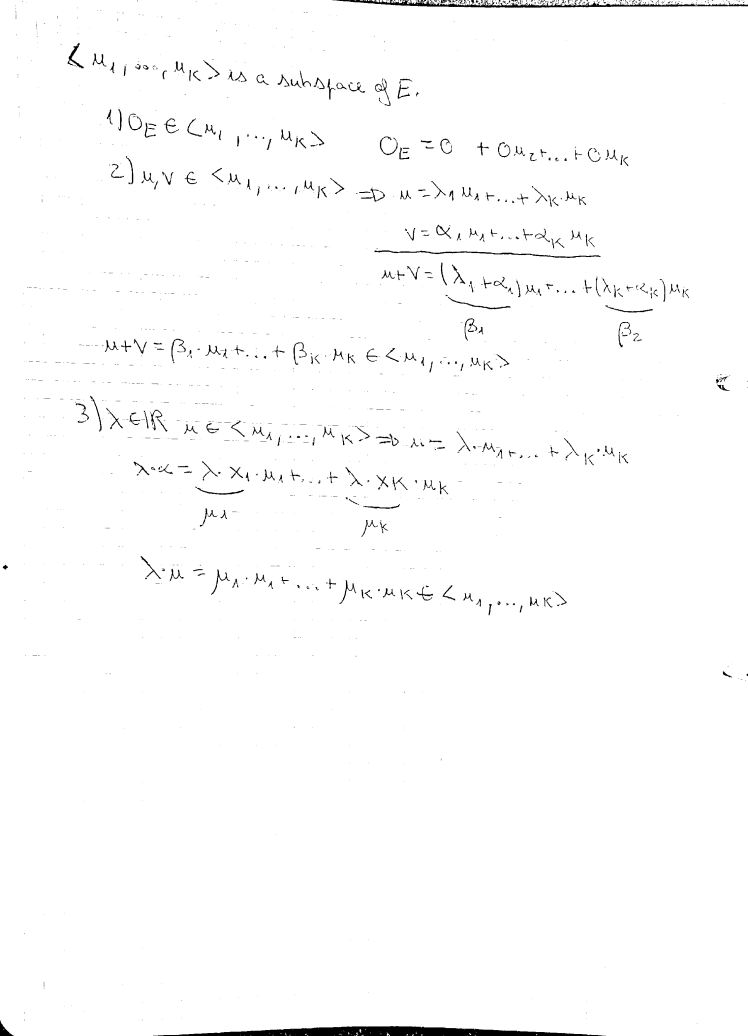 <u1, ..., uK> is a subspace of E.
1) 0E ∈ <u1, ..., uK> 0E = 0 + 0u2+...+0uK
2) u,v ∈ <u1, ..., uK> => u = λ1 u1+...+λK·uK
v = α1 u1+...+αK uK
u+v = (λ1+α1)u1+...+(λK+αK)uK
β1 β2
u+v = β1·u1+...+βK·uK ∈ <u1, ..., uK>
3) λ∈IR u ∈ <u1, ..., uK> => u = λ·u1+...+λK·uK
λ·α = λ·x1·u1+...+λ·xK·uK
μ1 μK
λ·u = μ1·u1+...+μK·uK ∈ <u1, ..., uK>